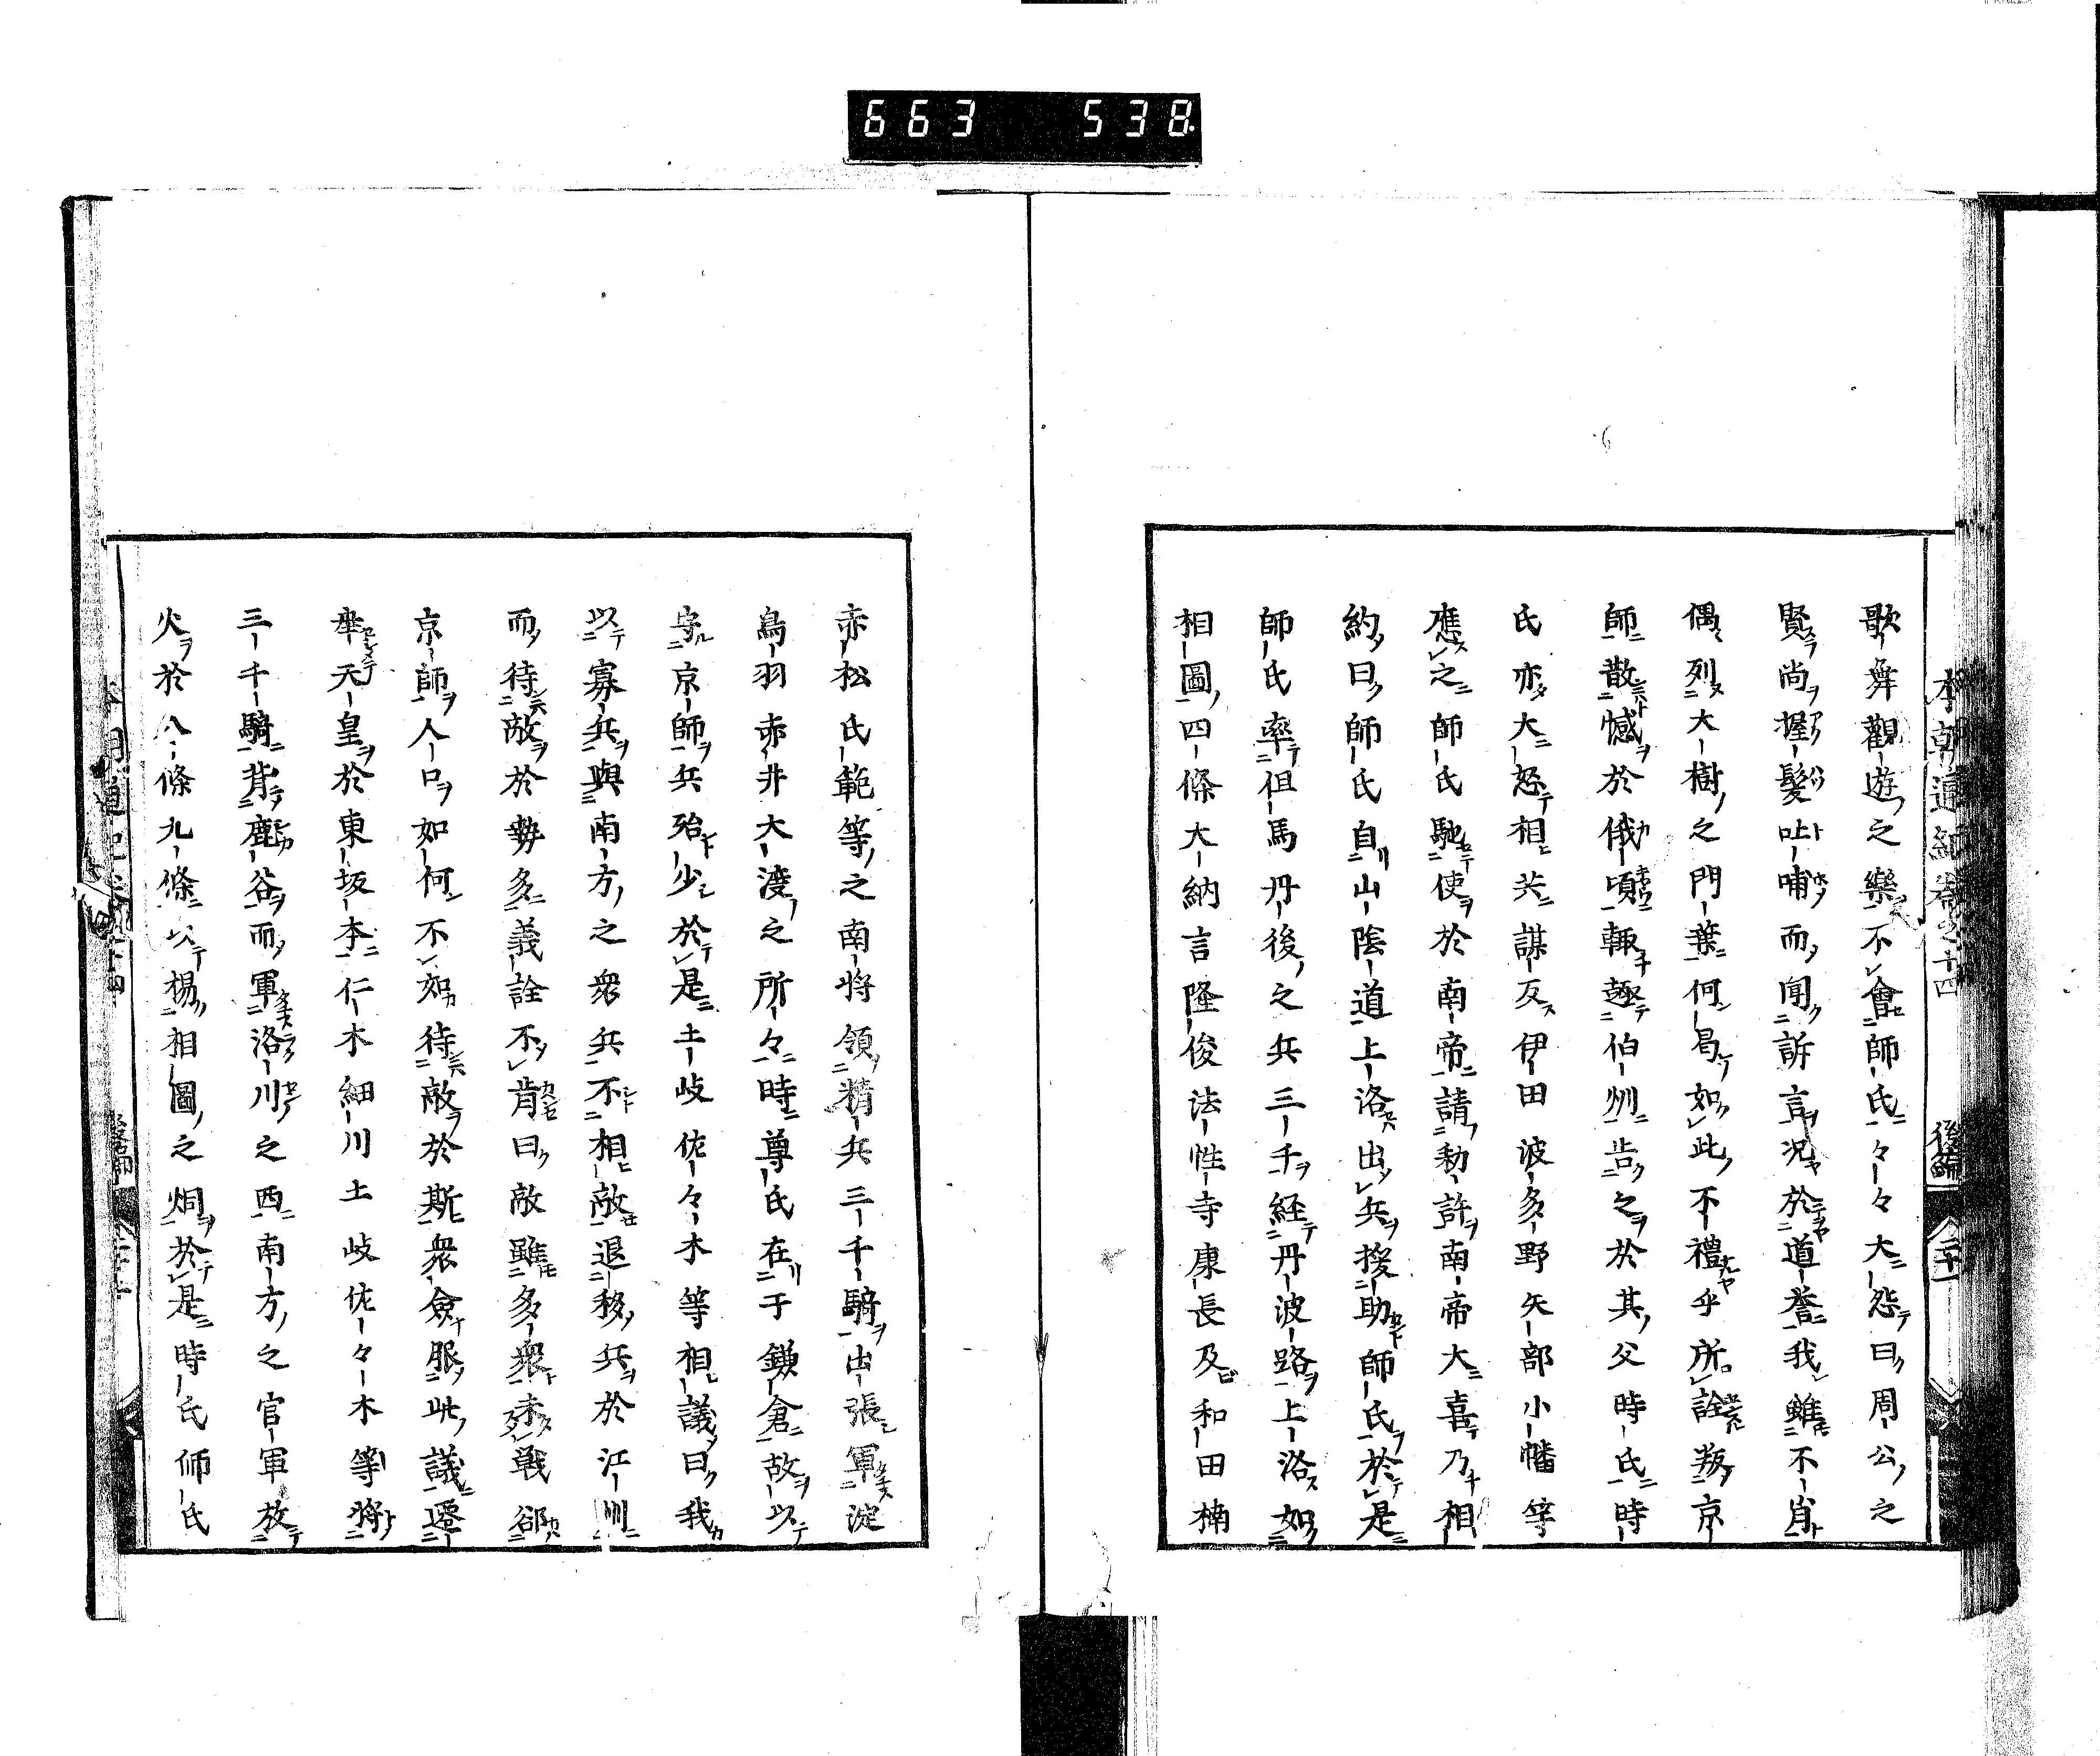 663 538.
本朝通紀卷之十四 後編 二十一
歌舞觀遊之樂不會師氏々々大怨曰周公之
賢尚握髮吐哺而聞訴言況於道誉我雖不肖
偶列大樹之門葉何曷如此不禮乎所詮叛京
師散憾於俄頃輙趣伯州告之於其父時氏時
氏亦大怒相共謀反伊田波多野矢部小幡等
應之師氏馳使於南帝請勅許南帝大喜乃相
約曰師氏自山陰道上洛出兵援助師氏於是
師氏率但馬丹後之兵三千経丹波路上洛如
相圖四條大納言隆俊法性寺康長及和田楠
赤松氏範等之南将領精兵三千騎出張軍淀
鳥羽赤井大渡之所々時尊氏在于鎌倉故以
守京師兵殆少於是土岐佐々木等相議曰我
以寡兵與南方之衆兵不相敵退移兵於江州
而待敵於勢多義詮不肯曰敵雖多衆未戦郤
京師人口如何不如待敵於斯衆僉服此議遷
坐天皇於東坂本仁木細川土岐佐々木等将
三千騎背鹿谷而軍洛川之西南方之官軍放
火於八條九條以揚相圖之烟於是時氏師氏